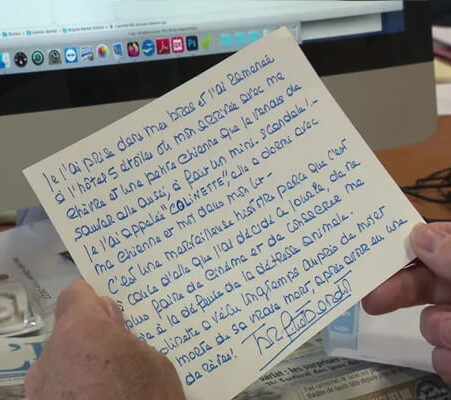 Je l'ai prise dans mes bras et l'ai ramenée
à l'hôtel 5 étoiles où mon arrivée avec ma
chèvre et une petite chienne que je venais de
sauver elle aussi, a fait un mini scandale !-
Je l'ai appelée "COLINETTE", elle a dormi avec
ma chienne et moi dans mon lit-
C'est une merveilleuse histoire parce que c'est
cause d'elle que j'ai décidé à de ne
plus faire de cinéma et de consacrer ma
à la défense de la détresse animale.
linette a vécu longtemps auprès de moi et
morte de sa vraie mort, après avoir eu une
de rêve !
Bardot